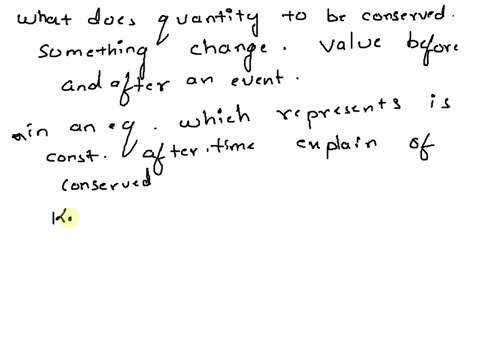 what does quantity to be conserved.
something change. value before
and after an event.
in an eq. which represents is
const. after.time explain of
conserved
K.